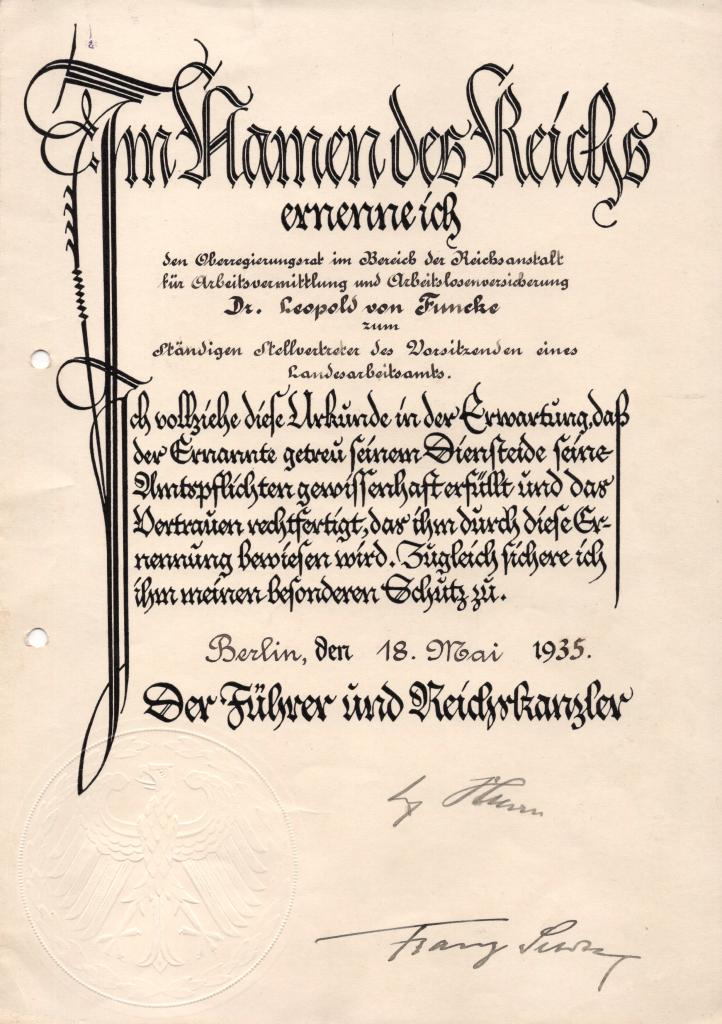 Im Namen des Reichs
ernenne ich
den Oberregierungsrat im Bereich der Reichsanstalt
für Arbeitsvermittlung und Arbeitslosenversicherung
Dr. Leopold von Funcke
zum
Ständigen Stellvertreter des Vorsitzenden eines
Landesarbeitsamts.
Ich vollziehe diese Urkunde in der Erwartung, daß
der Ernannte getreu seinem Diensteide seine
Amtspflichten gewissenhaft erfüllt und das
Vertrauen rechtfertigt, das ihm durch diese Er-
nennung bewiesen wird. Zugleich sichere ich
ihm meinen besonderen Schutz zu.
Berlin, den 18. Mai 1935.
Der Führer und Reichskanzler
Franz